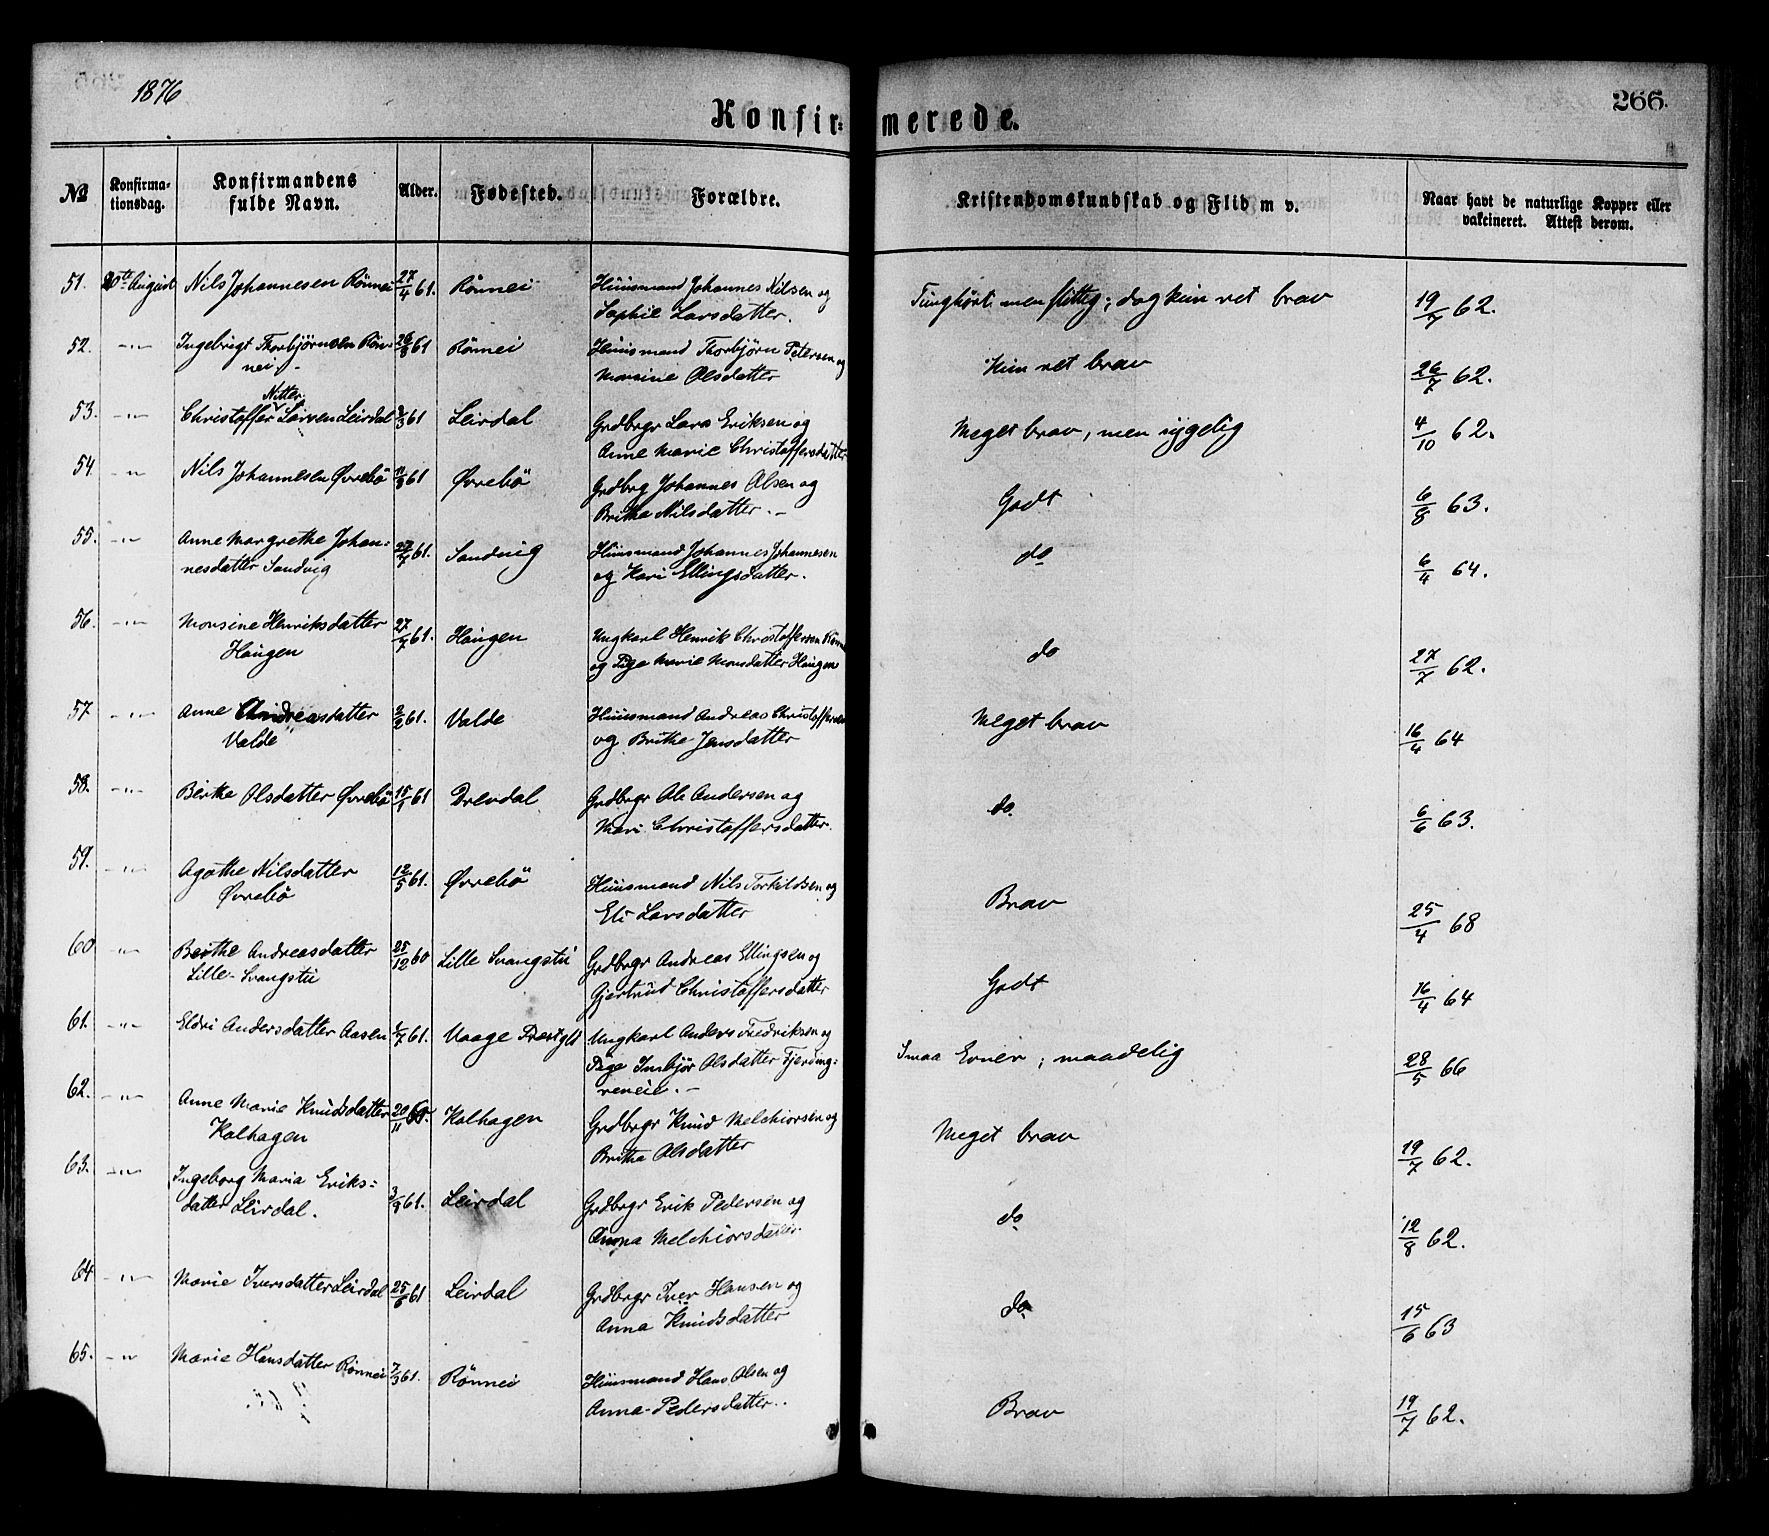 1876
266.
Konfir= merede.
No
Konfirma-
tionsdag.
Konfirmandens
fulde Navn.
Alder.
Fødested.
Forældre.
Kristendomskundskab og Flid m v.
Naar havt de naturlige Kopper eller
vakcineret. Attest derom.
51. 20te August Nils Johannesen Rönnei 27/4 61. Rönnei Huusmand Johannes Nilsen og
Sophie Larsdatter.
Tunghört men flittig; dog kun ret brav 19/7 62.
52. -"- Ingebrigt Thorbjörnsen Rön-
nei.
61 Rönnei Huusmand Thorbjörn Petersen og
Monsine Olsdatter
Kun ret brav 26/7 62.
53. -"- Christoffer Nitter Larsen Leirdal /3 61 Leirdal Grdbrgr Lars Eriksen og
Anne Marie Christoffersdatter
Meget brav, men sygelig 4/10 62.
54. -"- Nils Johannesen Øvrebö 11/8 61 Øvrebö Grdbrg Johannes Olsen og
Brithe Nilsdatter.-
Godt 6/8 63.
55. -"- Anne Margrethe Johan=
nesdatter Sandvig
27/7 61. Sandvig Huusmand Johannes Johannesen
og Kari Ellingsdatter.
do 6/4 64.
56. -"- Monsine Henriksdatter
Haugen
27/7 61. Haugen Ungkarl Henrik Christoffersen
og Pige Marie Monsdatter Haugen
do 27/7 62.
57 -"- Anne Andreasdatter
Valde
2/2 61. Valde Huusmand Andreas Christoffersen
og Brithe Jensdatter
Meget brav 16/4 64
58. -"- Berthe Olsdatter Øvrebö 15/1 61 Drevdal Grdbrgr Ole Andersen og
Mari Christoffersdatter.
do. 6/6 63.
59. -"- Agathe Nilsdatter
Øvrebö
12/5 61. Øvrebö Huusmand Nils Torkildsen og
Eli Larsdatter
Brav 25/4 68
60 -"- Berthe Andreasdatter
Lille-Svangstu
25/12 60 Lille Svangstu Grdbrgr Andreas Ellingsen og
Gjertrud Christoffersdatter
Godt 16/4 64
61. -"- Eldri Andersdatter Aasen /7 61. Vaage Ungkarl Anders Fredriksen og
Pige Imbjör Olsdatter Fjerding=
reneie.-
Smaa Evner; maadelig 28/5 66
62. -"- Anne Marie Knudsdatter
Kalhagen
20/11 60. Kalhagen Grdbrgr Knud Melchiorsen og
Britha Olsdatter
Meget brav 19/7 62.
63. -"- Ingeborg Maria Eriks=
datter Leirdal.
61. Leirdal Grdbrgr Erik Pedersen og
Anna Melchiorsdatter
do 12/8 62.
64 -"- Marie Iversdatter Leirdal 25/6 61 Leirdal Grdbrgr Iver Hansen og
Anna Knudsdatter
do 15/6 63
65. -"- Marie Hansdatter Rönnei 7/3 61. Rönnei Huusmand Hans Olsen og
Anna Pedersdatter.
Brav 19/7 62.